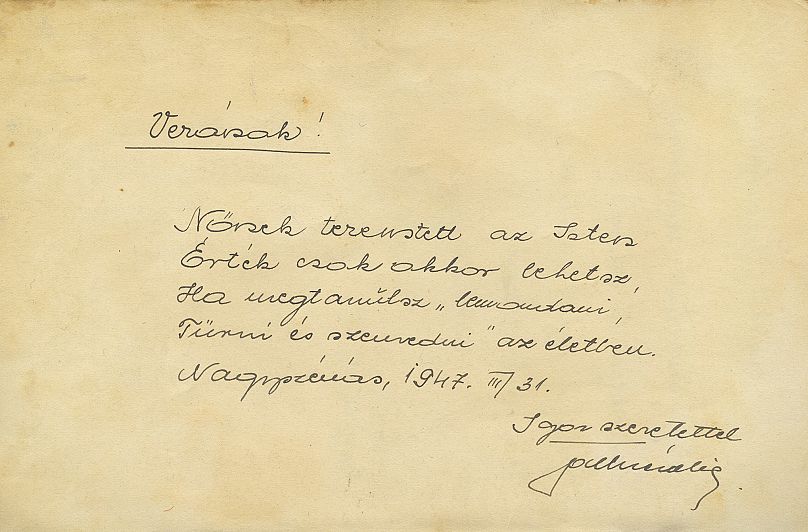 Verának!
Nőnek teremtett az Isten
Érték csak akkor lehetsz,
Ha megtanűlsz „lemondani,
Tűrni és szenvedni" az életben.
Nagyszénás, 1947. III/31.
Igaz szeretettel